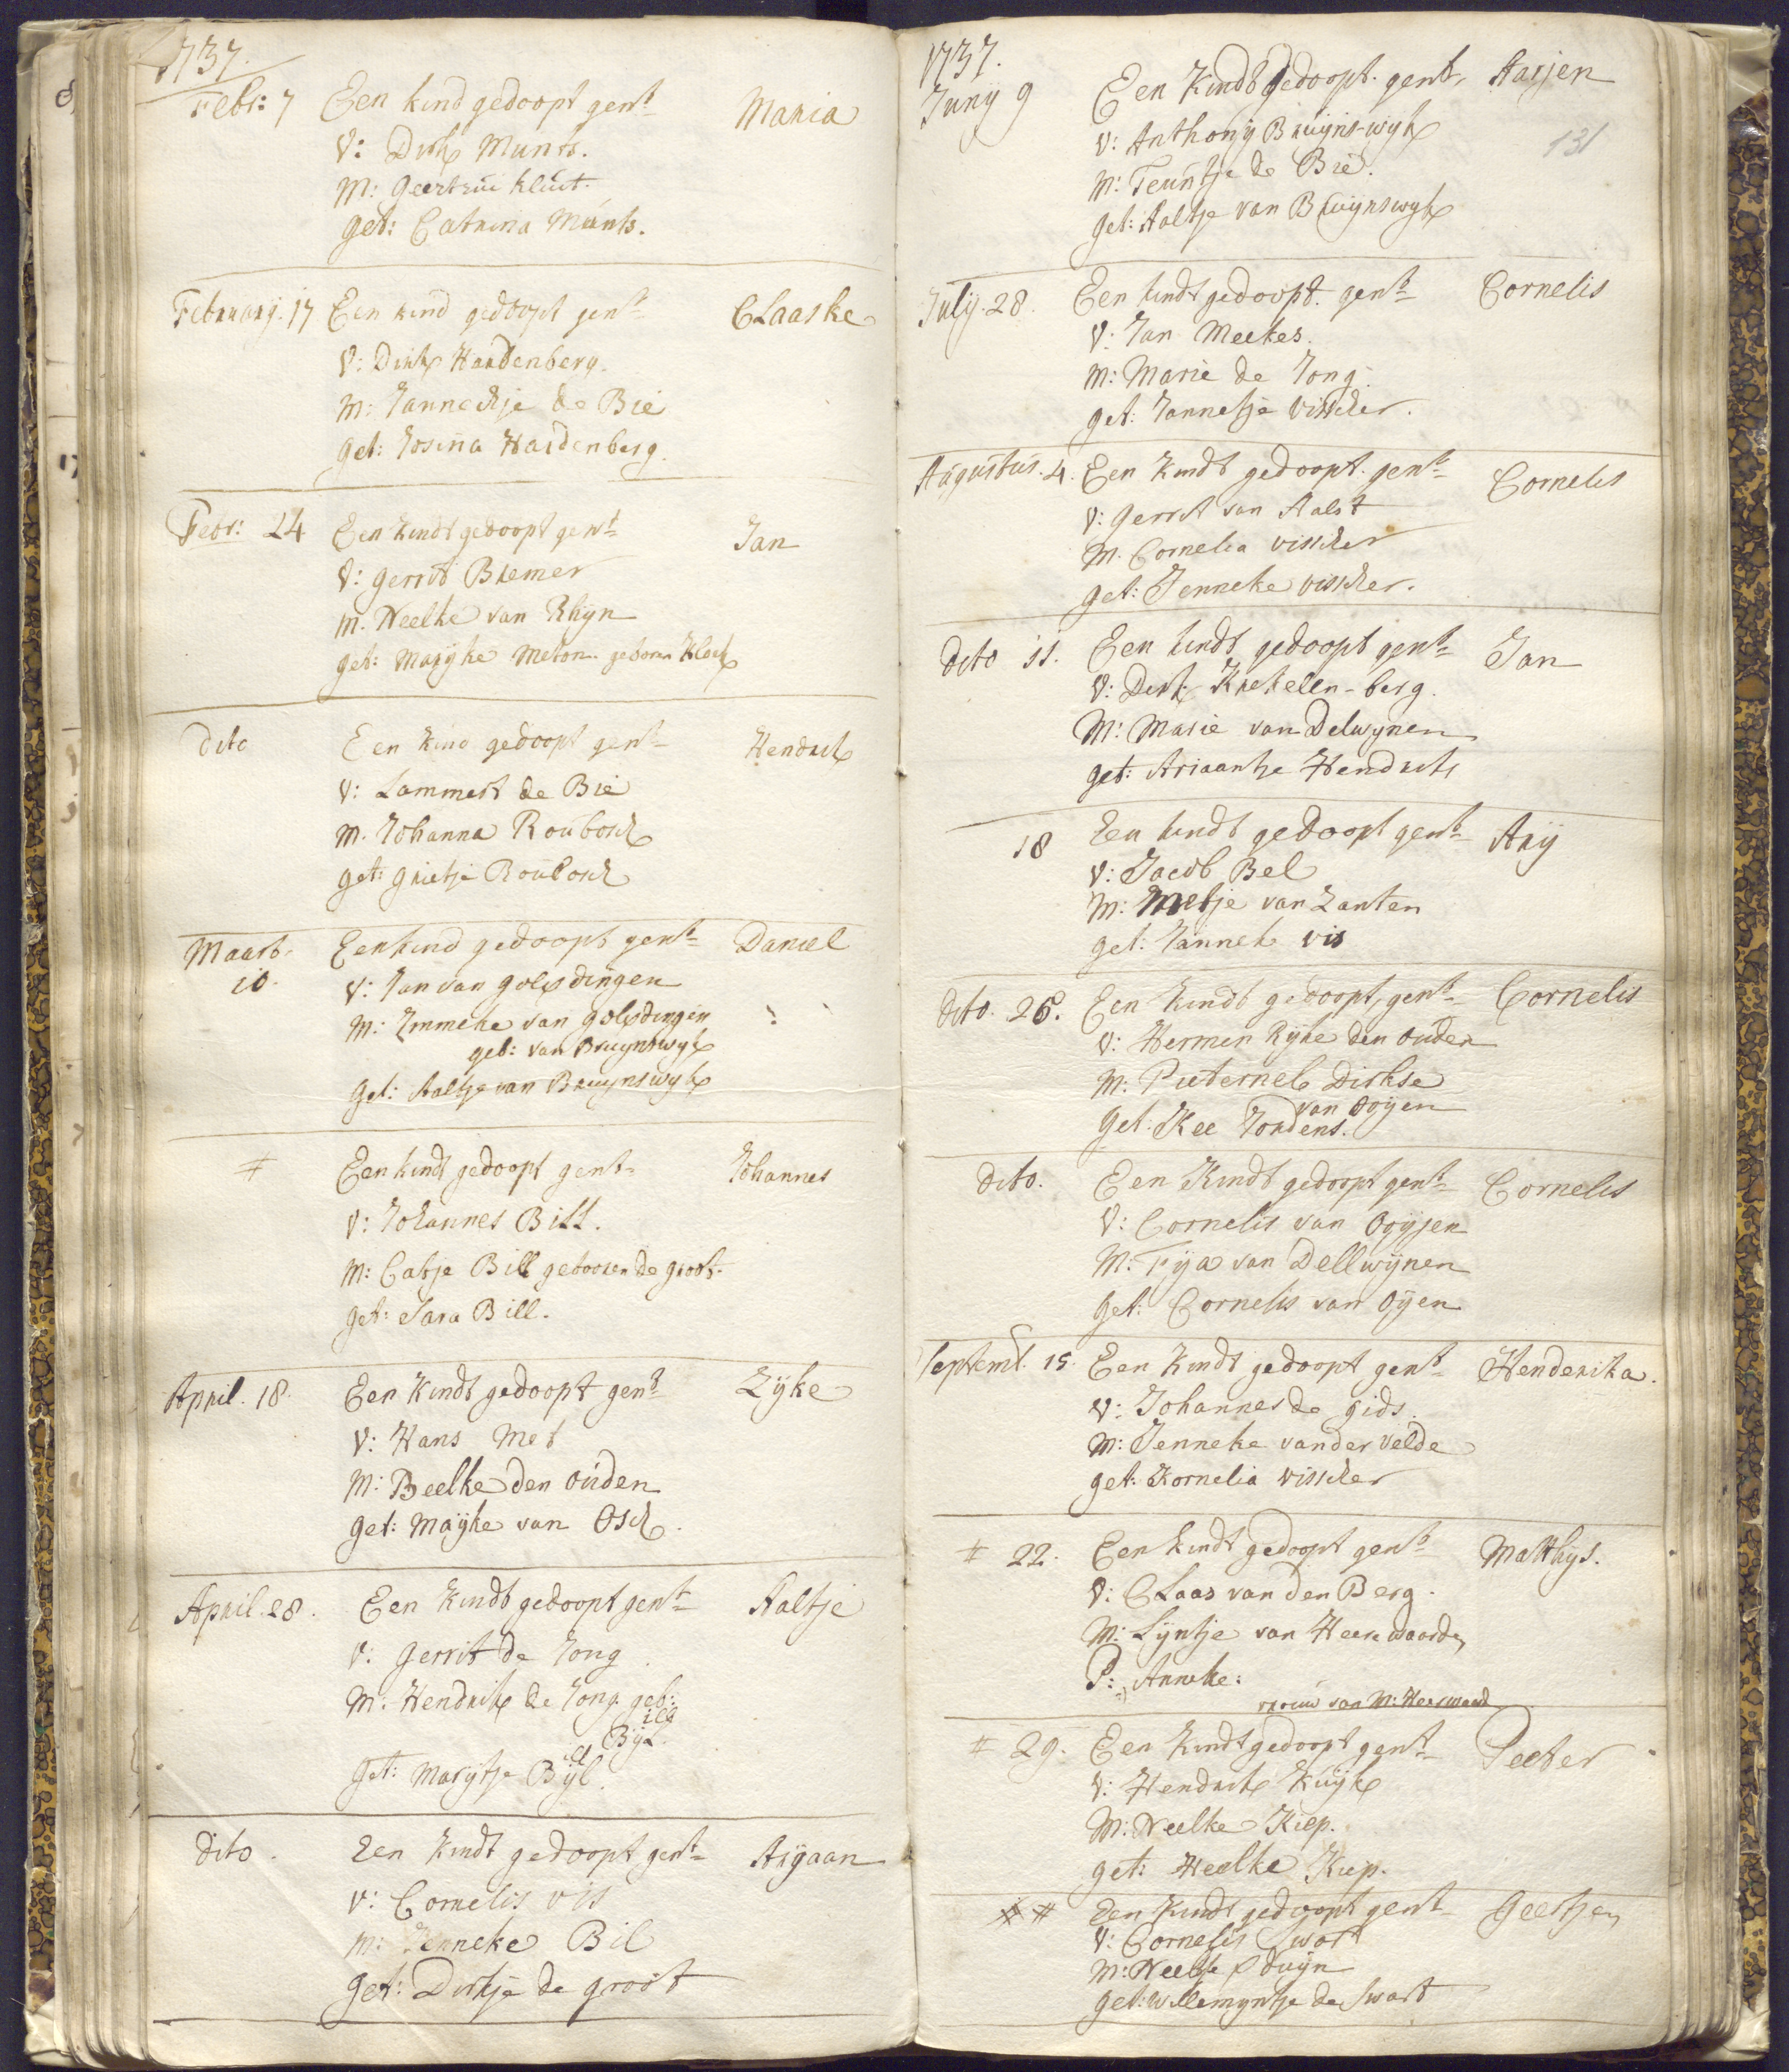 1737.
Febr: 7 Een kind gedoopt gent Maria
V: Dirk Munts.
M: Geertrui Kluit.
get: Catrina Munts.
February. 17 Een kind gedoopt gent CLaaske
V: Dirk Hardenberg.
M: Jannechje de Bie
get: Josina Hardenberg.
Febr: 24 Een kindt gedoopt gent Jan
V: Gerrit Bremer
M. Neelke van Rhyn
get: Maryke Meton geboren Klock
dito Een kind gedoopt gent Hendrik
V: Lammert de Bie
M. Johanna Roubosch
get: Grietje Roubosch
Maart. Een kind gedoopt gent Daniel
10. V: Jan van Golsdingen
M: Emmeke van Golsdingen
geb: van Bruynswyk
Get: Aaltje van Bruynswyk
# Een kindt gedoopt gent Johannes
V: Johannes Bill.
M: Catje Bill gebooren de Groot.
get: Sara Bill.
April. 18. Een Kindt gedoopt gent Zyke
V: Hans Met
M: Beelke den Ouden
Get: Mayke van Osch.
April. 28. Een Kindt gedoopt gent Aaltje
V: Gerrit de Jong.
M: Hendrik de Jong geb:
Byl.
Get: Marijtje Byl.
dito. Een Kindt gedoopt gent Arjaan
V: Cornelis vis
M: Jenneke Bil
Get: Dirkje de Groot
1737.
Juny 9 Een Kindt gedoopt. gent, Aarjen
131
V: Anthony Bruijns-wyk
M: Teuntje de Bie.
get: Aaltje van Bruynswyk
July. 28. Een kindt gedoopt. gent Cornelis
V: Jan Meekes.
M: Marie de Jong.
get: Jannetje Visscher.
Augustus. 4. Een Kindt gedoopt. gent Cornelis
V: Gerrit van Aalst
M. Cornelia Visscher
get: Jenneke Visscher.
dito 11. Een kindt gedoopt gent Jan
V: Derk Krekelen-berg.
M: Marie van Delwynen
get: Ariaantje Hendriks
18 Een kindt gedoopt gent Arij
V: Jacob Bel
M: Metje van Zanten
get: Janneke vis
dito. 25. Een Kindt gedoopt, gent Cornelis
V: Hermen Ryke den Ouden
M: Pieternel Dirkse
van Oyen
Get: Kee Jordens.
dito. Een Kindt gedoopt gent Cornelis
V: Cornelis van Ooyen
M: Fya van Dellwynen
Get: Cornelis van Oyen
Septemb. 15. Een Kindt gedoopt gent Henderika.
V: Johannes de Gids.
M: Jenneke vander Velde
get: Kornelia Visscher
# 22. Een kindt gedoopt gent Matthys.
V: CLaas van den Berg.
M: Lyntje van Heerewaarde,
P: Anneke:
vrouw van M: Heerwaard
# 29. Een Kindt gedoopt gent Peeter
V: Hendrik Kuyk
M: Neelke Kiep.
get: Heelke Kiep.
# # Een Kindt gedoopt gent Geertjen
V: Cornelis Swart
M: Neeltje Pduyn
get: Willemyntje de Swart